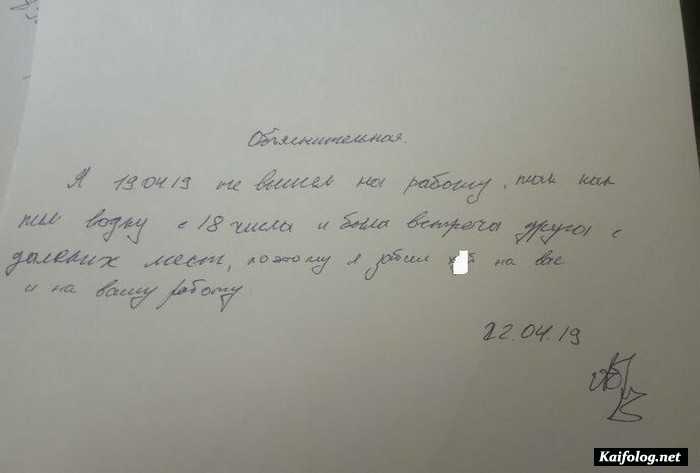 Объяснительная.
Я 190419 не вышел на работу, так как
пил водку с 18 числа и была встреча друга с
далеких мест, поэтому я забил х й на вас
и на вашу работу
22.04.19
Kaifolog.net